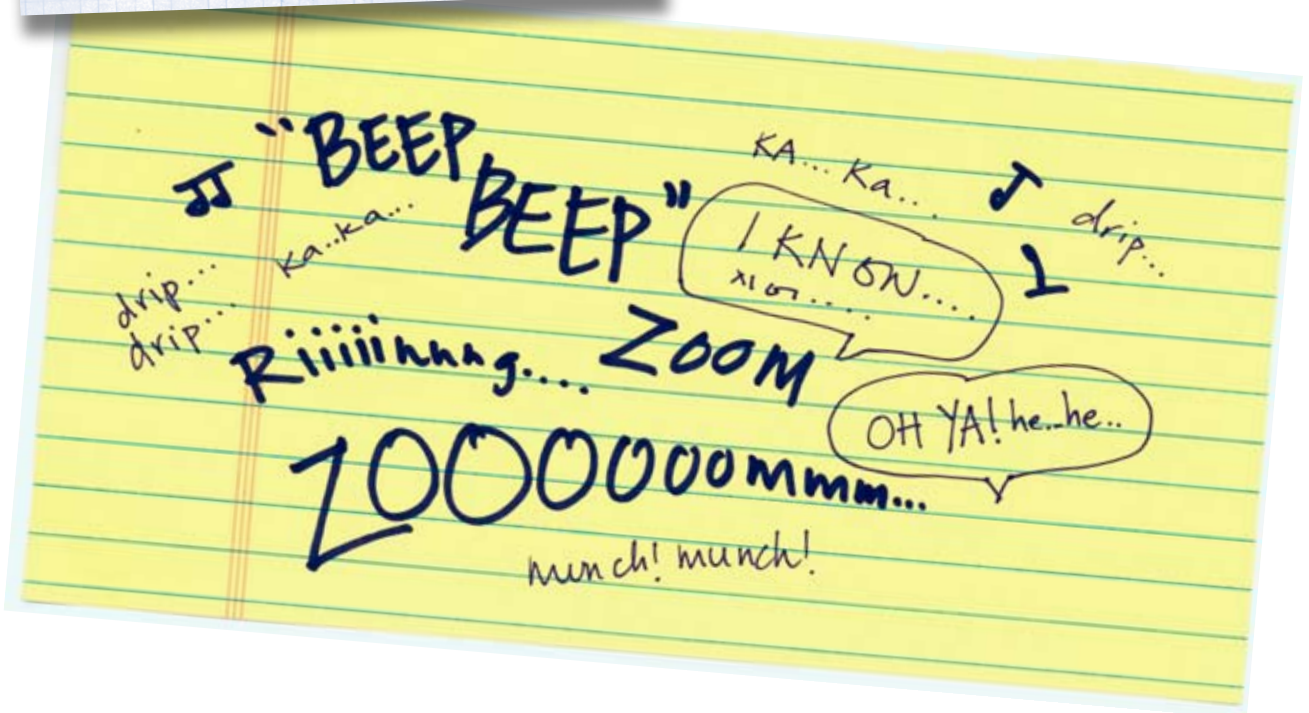 "BEEP
BEEP"
KA... Ka...
drip...
ka..ka...
I KNOW....
drip...
drip...
Riiiiinnng....
ZOOM
OH YA! he...he..
ZOOOOOoommm...
munch! munch!